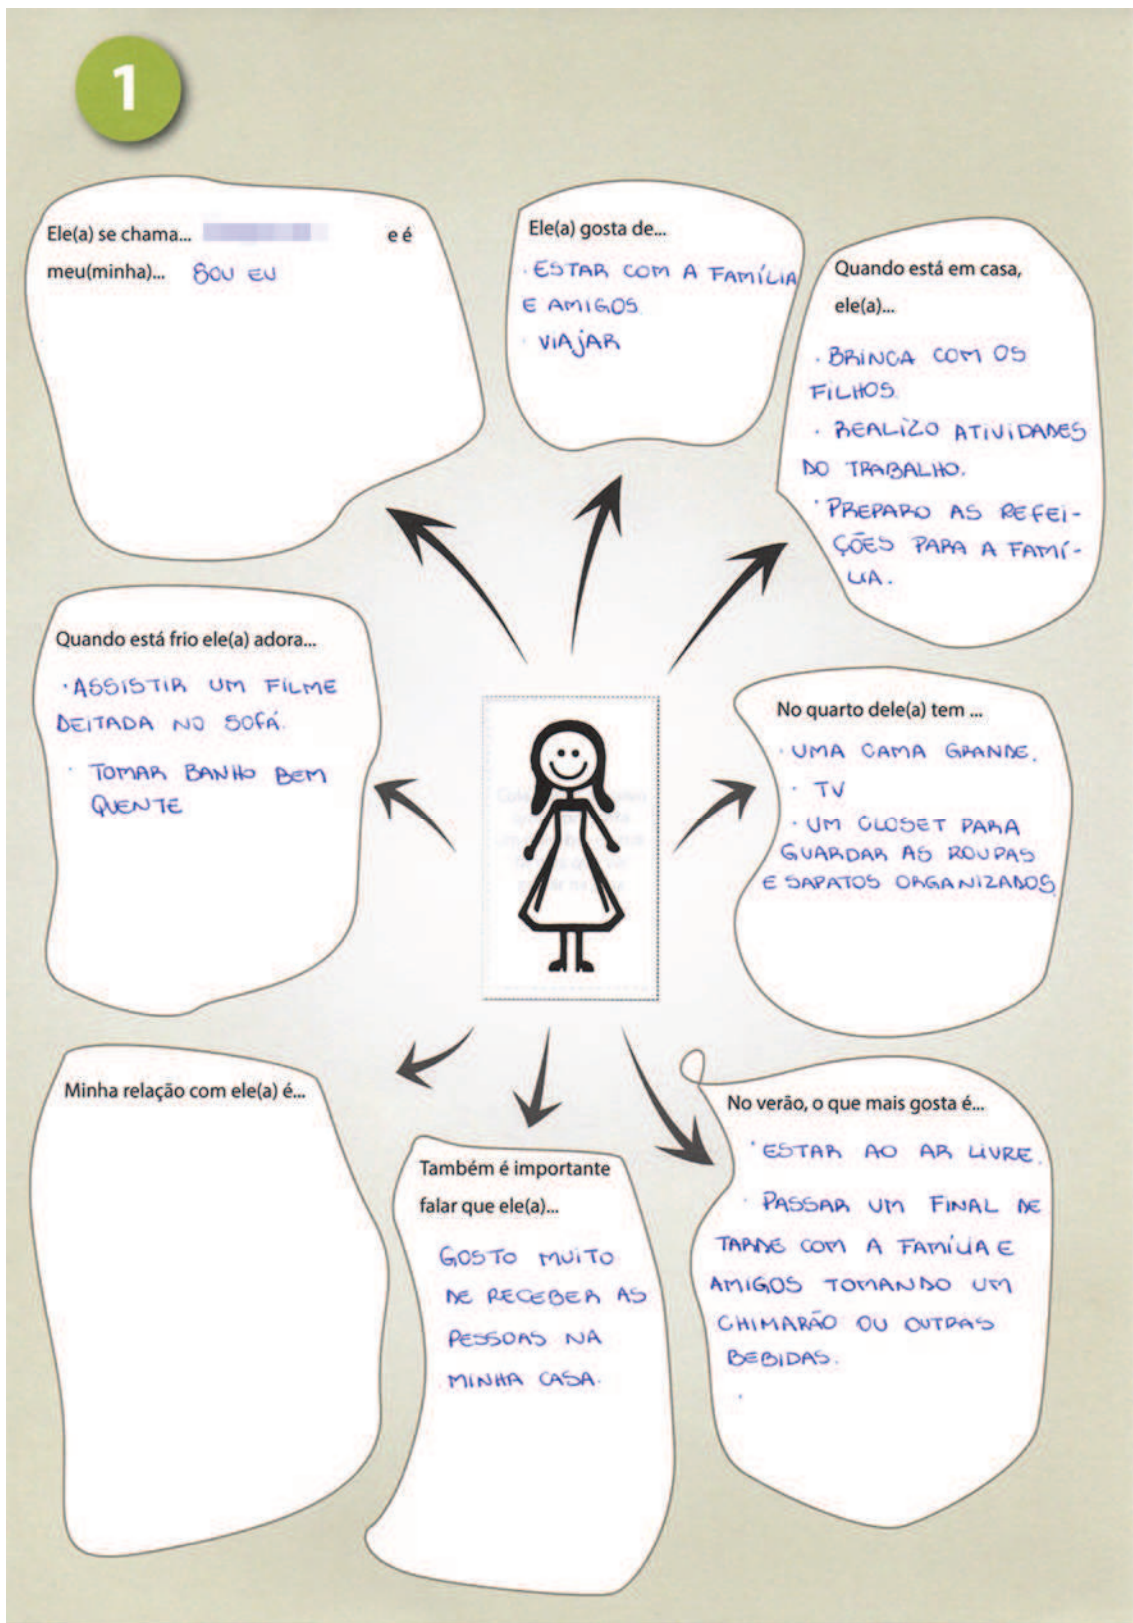 1
Ele(a) se chama... e é
meu(minha)... SOU EU
Ele(a) gosta de...
· ESTAR COM A FAMÍLIA
E AMIGOS
· VIAJAR
Quando está em casa,
ele(a)...
· BRINCA COM OS
FILHOS.
· REALIZO ATIVIDADES
DO TRABALHO.
· PREPARO AS REFEI-
ÇÕES PARA A FAMÍ-
LIA.
Quando está frio ele(a) adora...
· ASSISTIR UM FILME
DEITADA NO SOFÁ.
· TOMAR BANHO BEM
QUENTE
No quarto dele(a) tem ...
· UMA CAMA GRANDE.
· TV
· UM CLOSET PARA
GUARDAR AS ROUPAS
E SAPATOS ORGANIZADOS
Minha relação com ele(a) é...
Também é importante
falar que ele(a)...
GOSTO MUITO
DE RECEBER AS
PESSOAS NA
MINHA CASA.
No verão, o que mais gosta é...
· ESTAR AO AR LIVRE.
· PASSAR UM FINAL DE
TARDE COM A FAMÍLIA E
AMIGOS TOMANDO UM
CHIMARÃO OU OUTRAS
BEBIDAS.
·